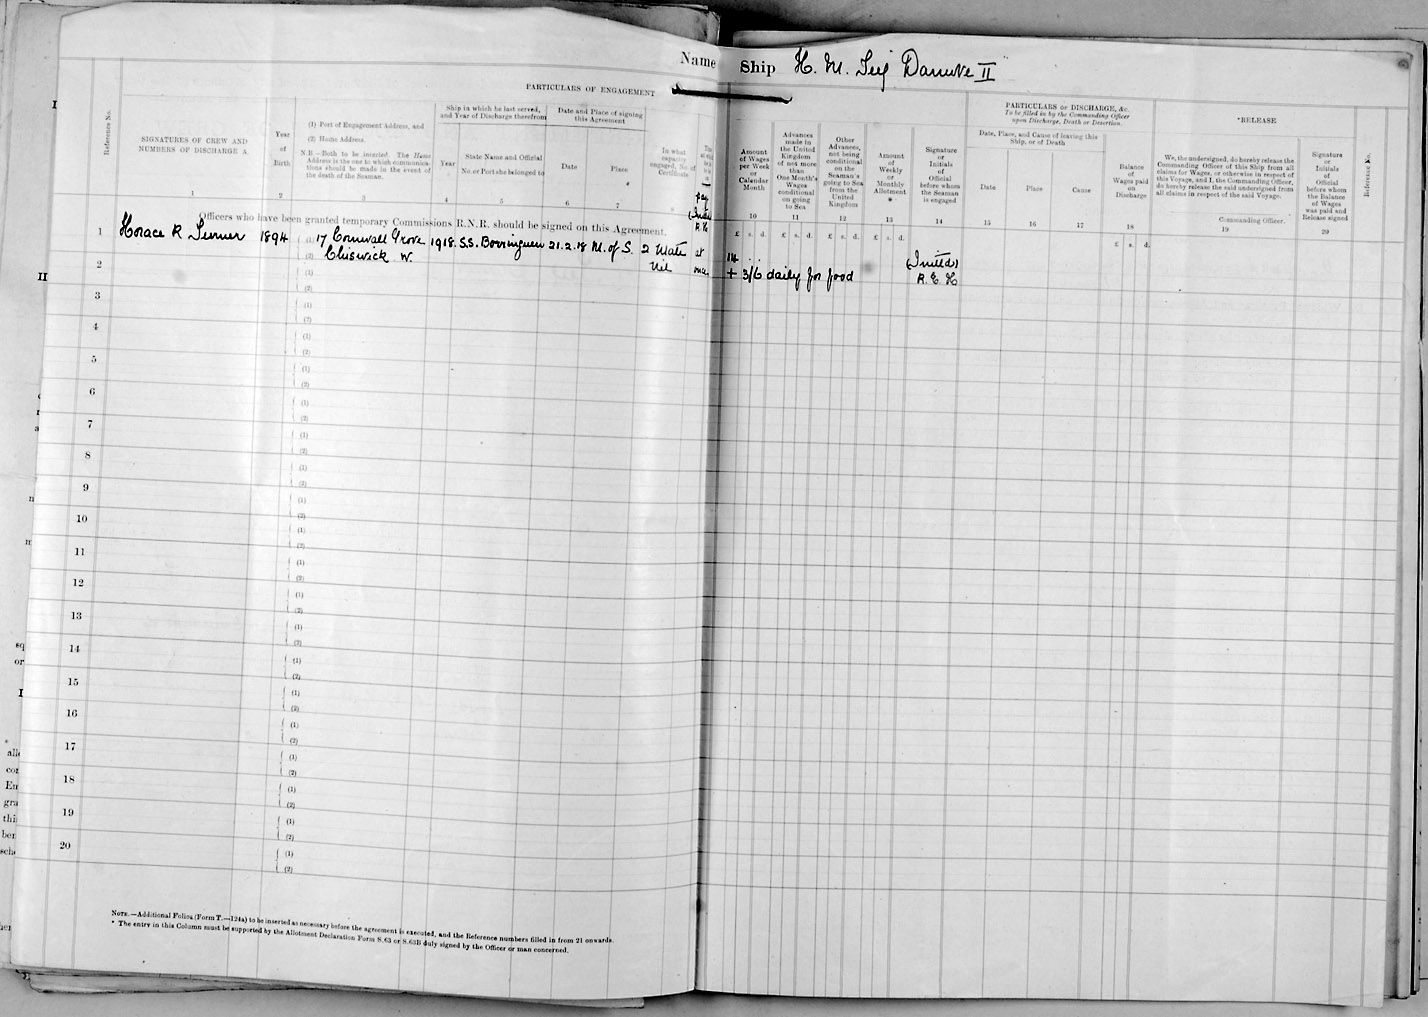 Name Ship H. M. Tug Danube II
PARTICULARS OF ENGAGEMENT
Reference No.
SIGNATURES OF CREW AND
NUMBERS OF DISCHARGE A.
1
Year
of
Birth
2
(1) Port of Engagement Address, and
(2) Home Address.
N.B.—Both to be inserted. The Home
Address is the one to which communica-
tions should be made in the event of
the death of the Seaman.
3
Ship in which he last served,
and Year of Discharge therefrom
Year
4
State Name and Official
No. or Port she belonged to
5
Date and Place of signing
this Agreement
Date
6
Place
7
In what
capacity
engaged, No. of
Certificate
Amount
of Wages
per Week
or
Calendar
Month
10
Advances
made in
the United
Kingdom
of not more
than
One Month's
Wages
conditional
on going
to Sea
11
Other
Advances,
not being
conditional
on the
Seaman's
going to Sea
from the
United
Kingdom
12
Amount
of
Weekly
or
Monthly
Allotment
*
13
Signature
or
Initials
of
Official
before whom
the Seaman
is engaged
14
PARTICULARS OF DISCHARGE, &c.
To be filled in by the Commanding Officer
upon Discharge, Death or Desertion.
Date, Place, and Cause of leaving this
Ship, or of Death
Date
15
Place
16
Cause
17
Balance
of
Wages paid
on
Discharge
18
*RELEASE
We, the undersigned, do hereby release the
Commanding Officer of this Ship from all
claims for Wages, or otherwise in respect of
this Voyage, and I, the Commanding Officer,
do hereby release the said undersigned from
all claims in respect of the said Voyage.
Commanding Officer.
19
Signature
or
Initials
of
Official
before whom
the Balance
of Wages
was paid and
Release signed
20
Reference No.
£ s. d. £ s. d. £ s. d. £ s. d. £ s. d.
Officers who have been granted temporary Commissions R.N.R. should be signed on this Agreement.
1 Horace R 1894 (1) 17 Cornwall Grove 1918 S.S. Borringuen 21.2.18 M. of S. 2 Mate at 14
(2) Chiswick W. Nil once + 3/6 daily for food (Initld) R. E. H
2 (1)
(2)
3 (1)
(2)
4 (1)
(2)
5 (1)
(2)
6 (1)
(2)
7 (1)
(2)
8 (1)
(2)
9 (1)
(2)
10 (1)
(2)
11 (1)
(2)
12 (1)
(2)
13 (1)
(2)
14 (1)
(2)
15 (1)
(2)
16 (1)
(2)
17 (1)
(2)
18 (1)
(2)
19 (1)
(2)
20 (1)
(2)
NOTE.—Additional Folios (Form T.—124a) to be inserted as necessary before the agreement is executed, and the Reference numbers filled in from 21 onwards.
* The entry in this Column must be supported by the Allotment Declaration Form S.63 or S.63B duly signed by the Officer or man concerned.